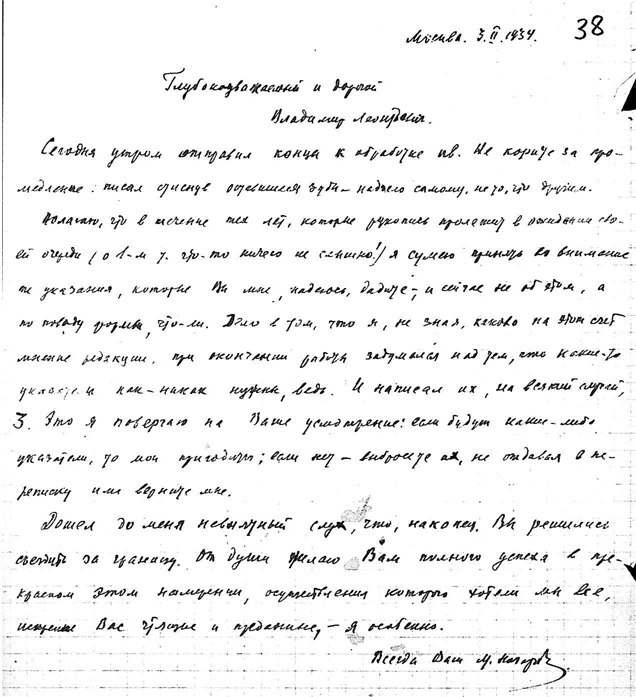 38
Москва. 3.II.1934.
Глубокоуважаемый и дорогой
Владимир Леонтьевич.
Сегодня утром отправил концы к обработке IV. Не корите за про-
медление: писал стиснув оставшиеся зубы – надоело самому, не то, что другим.
Полагаю, что в течение тех лет, которые рукопись пролежит в ожидании сво-
ей очереди (о 1-м т. что-то ничего не слышно!) я сумею принять во внимание
те указания, которые Вы мне, надеюсь, дадите, и сейчас не об этом, а
по поводу формы, что-ли. Дело в том, что я, не зная, каково на этот счет
мнение редакции, при окончании работы задумался над тем, что какие-то
указатели как-никак нужны, ведь. И написал их, на всякий случай,
3. Это я повергаю на Ваше усмотрение: если будут какие-либо
указатели, то мои пригодятся; если нет – выбросите их, не отдавая в пе-
реписку или верните мне.
Дошел до меня слух, что, наконец, Вы решились
съездить за границу. От души желаю Вам полного успеха в пре-
красном этом намерении, осуществления которого хотели мы все,
искренне Вас чтущие и преданные, – я особенно.
Всегда Ваш М.